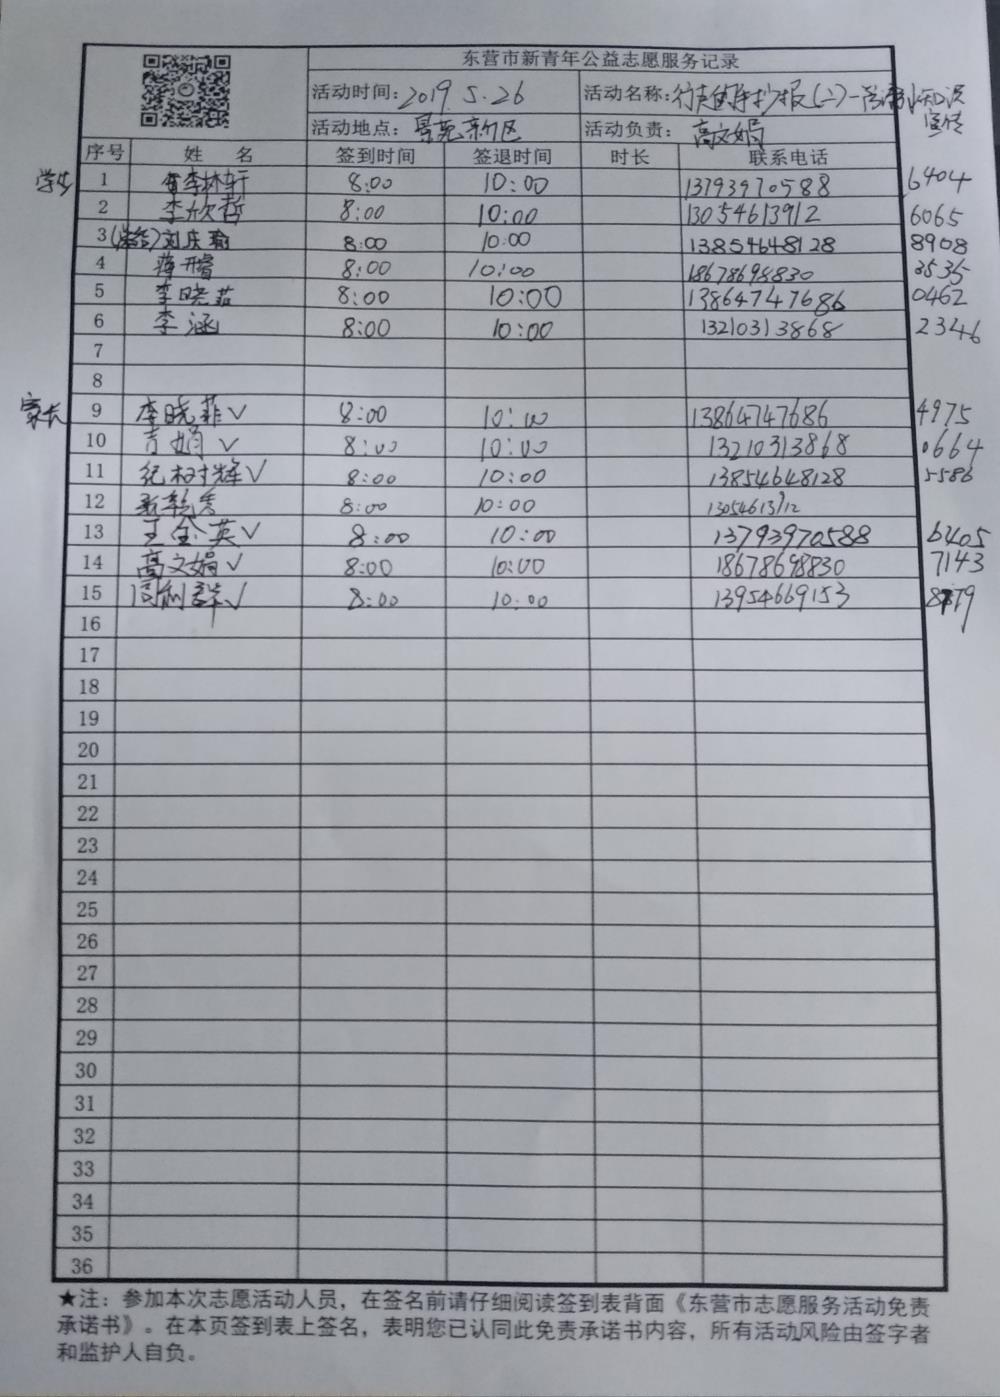 东营市新青年公益志愿服务记录
活动时间: 2019.5.26 活动名称: 报(二)一
宣传
活动地点: 景苑新区 活动负责: 高文娟
序号 姓 名 签到时间 签退时间 时长 联系电话
学生 1 李林轩 8:00 10:00 13793970588 6404
2 李欣哲 8:00 10:00 13054613912 6065
3 刘庆瑜 8:00 10:00 13854648128 8908
4 蒋开睿 8:00 10:00 18678698830 3535
5 李晓菲 8:00 10:00 13864747686 0462
6 李涵 8:00 10:00 13210313868 2346
7
8
家长 9 李晓菲√ 8:00 10:00 13864747686 4975
10 √ 8:00 10:00 13210313868 0664
11 纪树辉√ 8:00 10:00 13854648128 5586
12 8:00 10:00 13054613912
13 王金英√ 8:00 10:00 13793970588 6405
14 高文娟√ 8:00 10:00 18678698830 7143
15 √ 8:00 10:00 13954669153
16
17
18
19
20
21
22
23
24
25
26
27
28
29
30
31
32
33
34
35
36
★注：参加本次志愿活动人员，在签名前请仔细阅读签到表背面《东营市志愿服务活动免责
承诺书》。在本页签到表上签名，表明您已认同此免责承诺书内容，所有活动风险由签字者
和监护人自负。